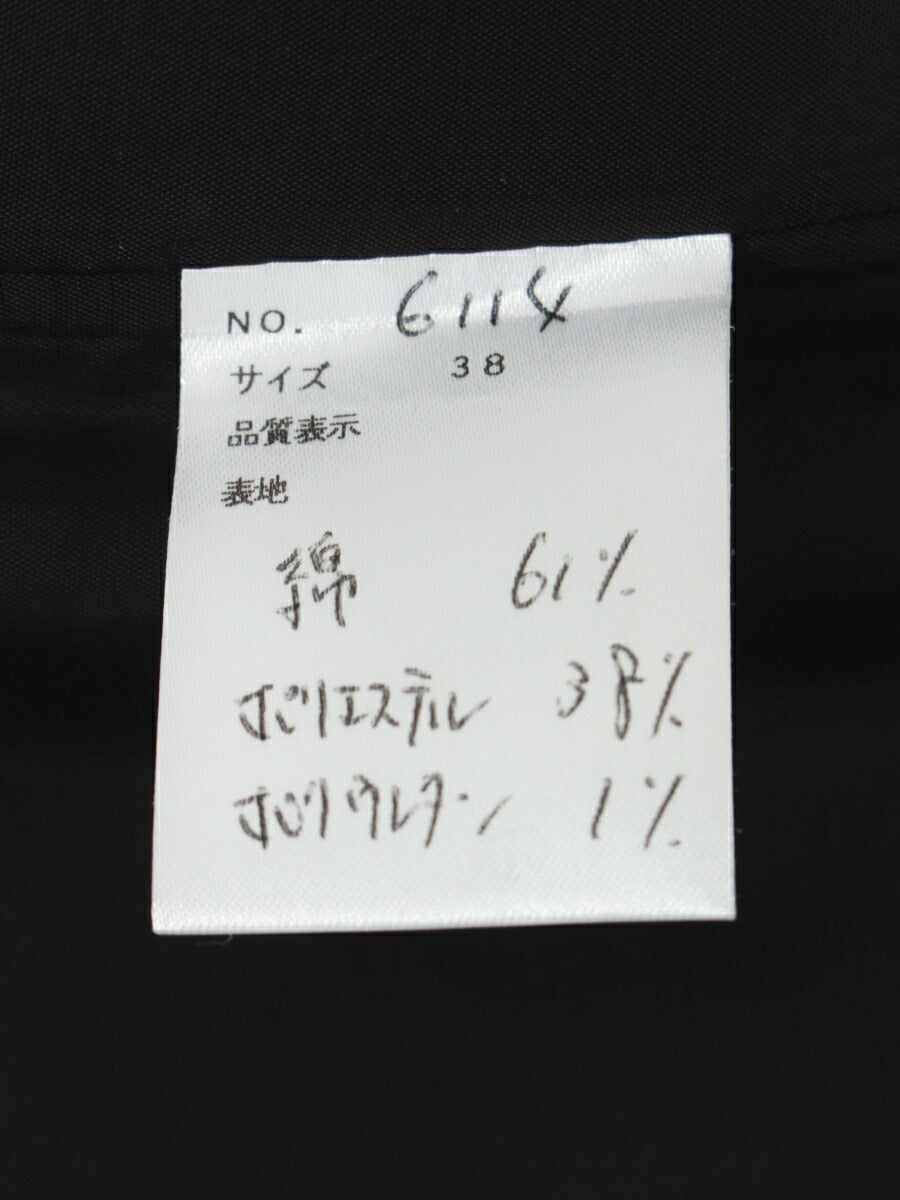 NO. 6114
サイズ 38
品質表示
表地
綿 61%
ポリエステル 38%
ポリウレタン 1%